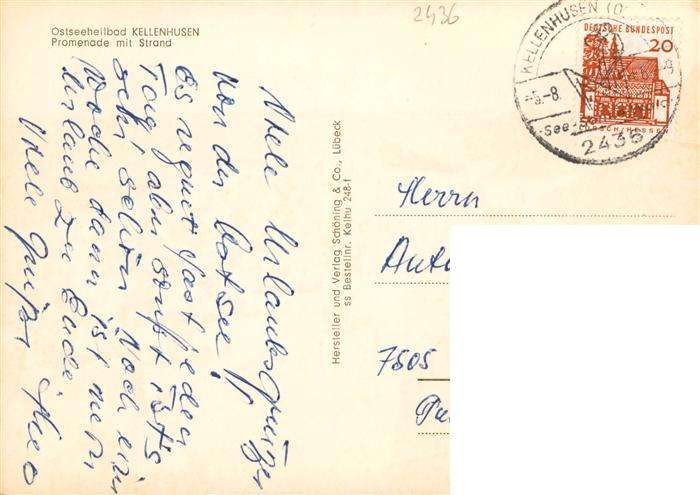 Ostseeheilbad KELLENHUSEN
Promenade mit Strand
2436
KELLENHUSEN (O
-5.-8.
See-
2436
DEUTSCHE BUNDESPOST
20
LORSCH/HESSEN
Viele Urlaubsgrüße
von der Ostsee!
Es regnet fast jeden
Tag, aber sonst ist's
sehr schön. Noch eine
Woche dann ist mein
Urlaub zu Ende.
Viele Grüße
Hersteller und Verlag Schöning & Co., Lübeck
ss Bestellnr. Kelhu 248-f
Herrn
7505